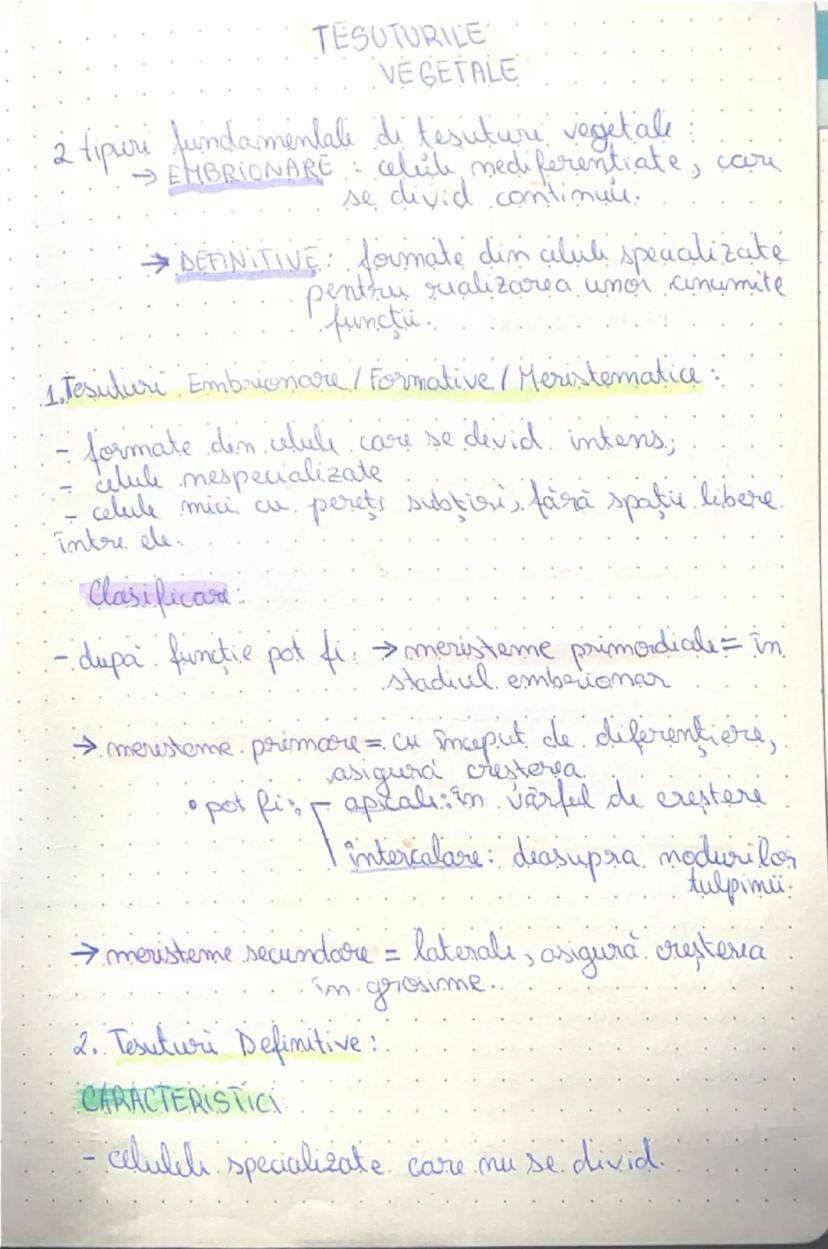 TESUTURILE
VEGETALE
2 tipuri fundamentale de tesuturi vegetale:
→ EMBRIONARE : celule nediferentiate, care
se divid continuu.
→ DEFINITIVE: formate din celule specializate
pentru realizarea unor anumite
funcții.
1. Tesuturi Embrionare / Formative / Meristematice :
- formate din celule care se divid intens;
- celule nespecializate
- celule mici cu pereți subțiri, fără spații libere
între ele.
Clasificare:
- după funcție pot fi: → meristeme primordiale = în
stadiul embrionar
→ meristeme primare = cu început de diferențiere,
asigură cresterea
• pot fi: apicale: în vârful de crestere
intercalare: deasupra nodurilor
tulpinii.
→ meristeme secundare = laterale, asigură creșterea
în grosime.
2. Tesuturi Definitive:
CARACTERISTICI
- celulele specializate care nu se divid.